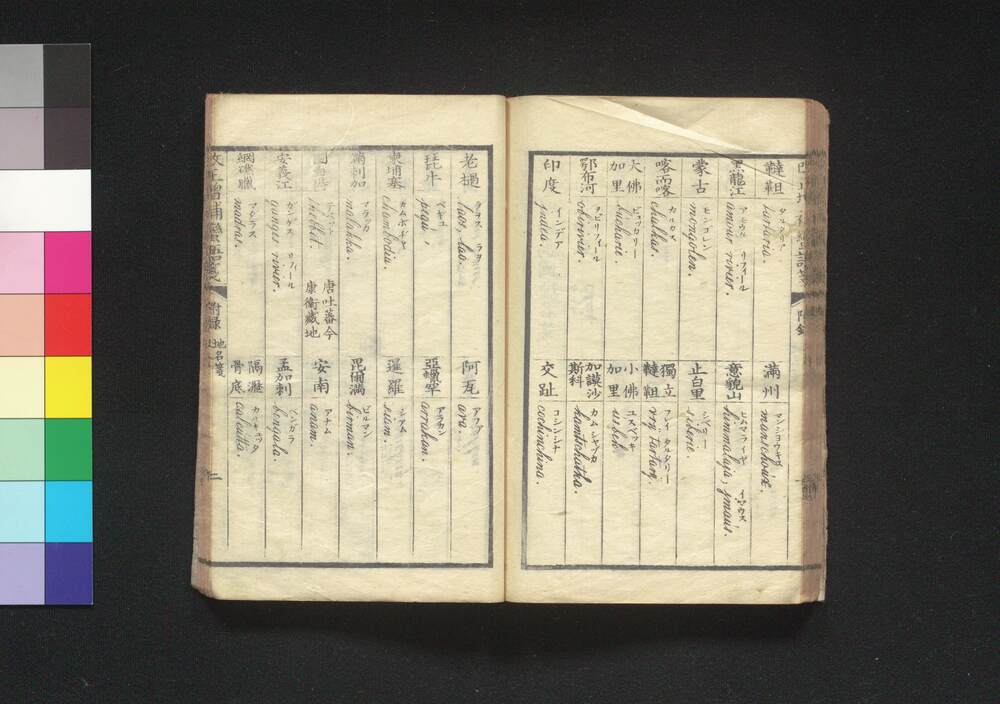 韃靼 タルタリア tartaria.
黒龍江 アムウル リフィール amour rivier.
蒙古 モンゴレン mongolen.
喀而喀 カルカス chalkas.
大佛加里 ビュカリー bucharie.
鄂布河 ヲビリフィール obirivier.
印度 インデア india.
満州 マンショウキセ manschouïx.
意貌山 ヒムマライヤ イマウス himmalaja, ymaus.
止白里 シベリー siberie.
獨立韃靼 フレイ タルタリー vry Tartary.
小佛加里 ユスベッキ usbek.
加謨沙斯科 カムシャツカ kamtschatka.
交趾 コシンシナ cochinchina.
老撾 ラヲス ラヲ laos, lao.
琵牛 ペギュ pegu,
東埔塞 カムボヂヤ chambodia.
満剌加 マラッカ malakka.
thibbet. 唐吐蕃今康衛藏地
安義江 カンゲス リフィール ganges rivier.
網礁臘 マダラス madras.
阿瓦 アフア ava.
亞蠟罕 アラカン arrakan.
暹羅 シアム siam.
毘爾満 ビルマン birman.
安南 アナム anam.
孟加剌 ベンガラ bengala.
隔瀝骨底 カルキュッタ calcutta.
改正増補蠻語箋
附録
地名箋
二